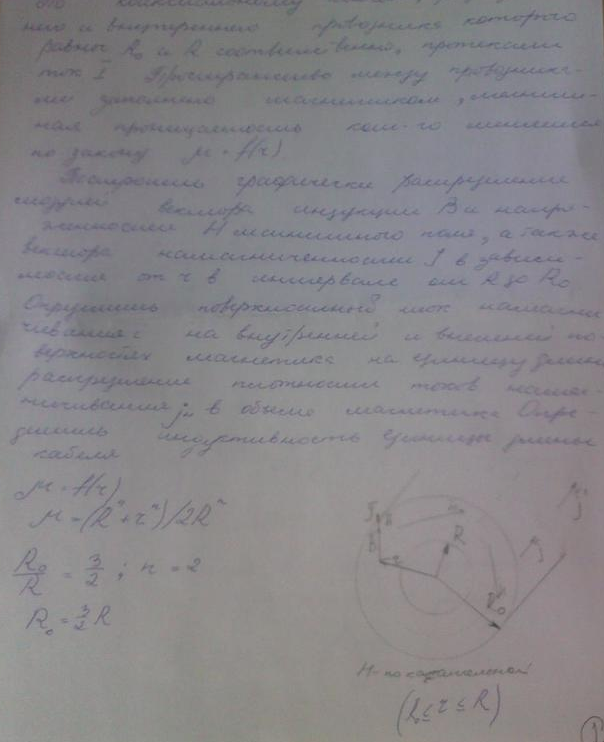 по коаксиальному
него и внутреннего проводника которого
равны R₀ и R соответственно, протекает
ток I. Пространство между проводника-
ми заполнено магнетиком, магнит-
ная проницаемость кот-го меняется
по закону μ = f(r)
Построить графически распределение
модулей вектора индукции B и напря-
женности H магнитного поля, а также
вектора намагниченности J в зависи-
мости от r в интервале от R до R₀
Определить поверхностный ток намагни-
чивания i на внутренней и внешней по-
верхностях магнетика на единицу длины
распределение плотности токов намаг-
ничивания j в объеме магнетика Опре-
делить индуктивность единицы длины
кабеля
μ = f(r)
μ = (Rⁿ + rⁿ)/2Rⁿ
R₀/R = 3/2 ; n = 2
R₀ = 3/2 R
J
B
r
R
R₀
H - по касательной
(R₀ ≤ r ≤ R)
1